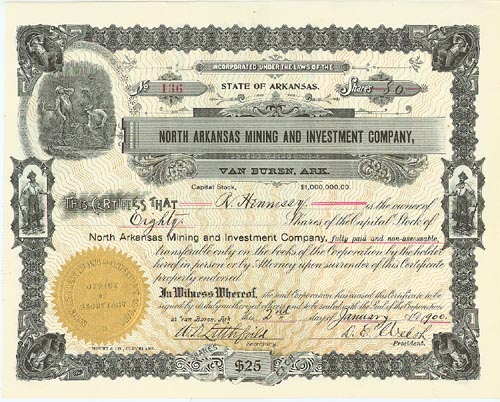 INCORPORATED UNDER THE LAWS OF THE
STATE OF ARKANSAS.
No 136
Shares 80
NORTH ARKANSAS MINING AND INVESTMENT COMPANY,
VAN BUREN, ARK.
Capital Stock, $1,000,000.00.
THIS CERTIFIES THAT R. Hennissy is the owner of
Eighty Shares of the Capital Stock of
North Arkansas Mining and Investment Company, fully paid and non-assessable,
transferable only on the books of the Corporation by the holder
hereof in person or by Attorney upon surrender of this Certificate
properly endorsed.
In Witness Whereof, the said Corporation has caused this Certificate to be
signed by its duly authorized officers and to be sealed with the Seal of the Corporation
at Van Buren, Ark this day of January 1900.
Secretary.
President.
SHARES
$25
EACH